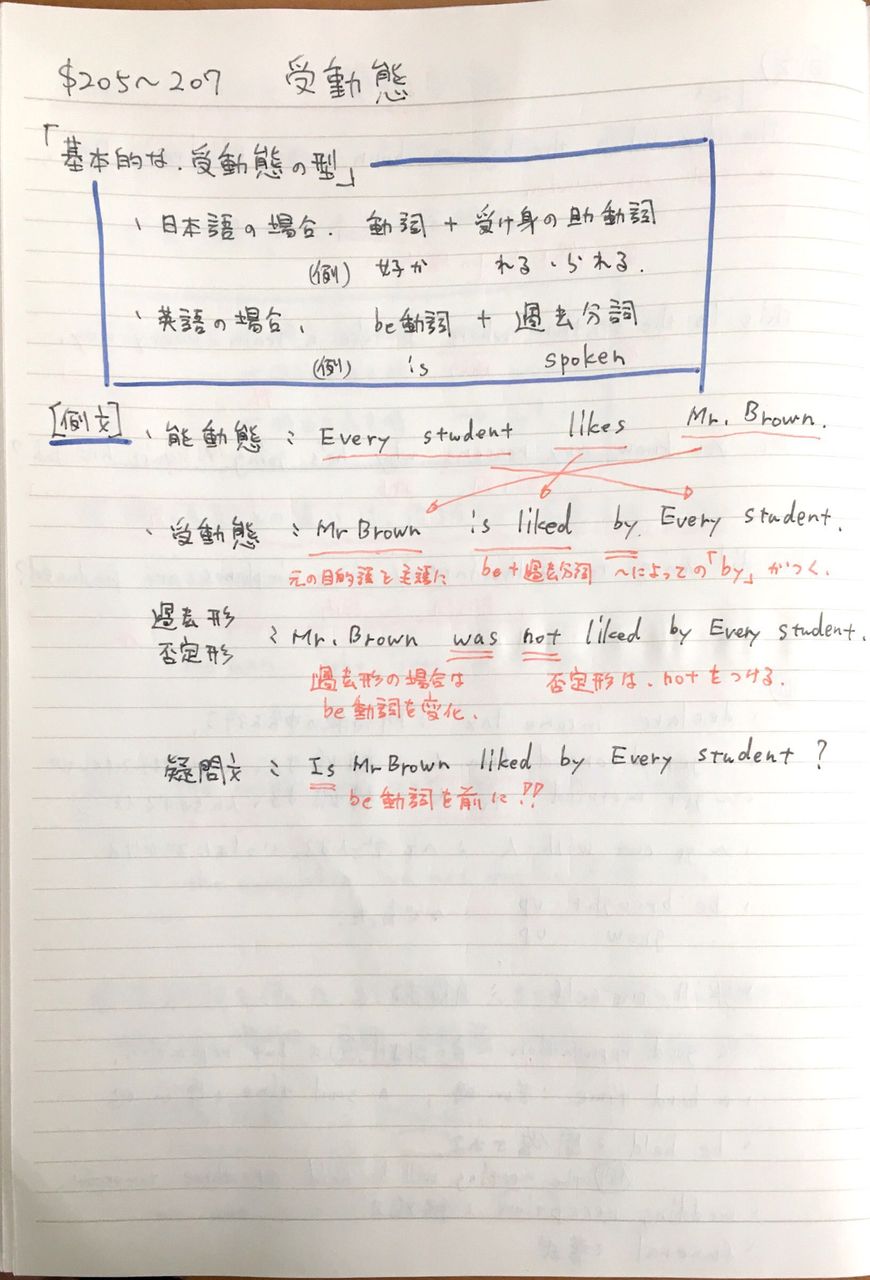 $205～207 受動態
「基本的な.受動態の型」
、日本語の場合. 動詞 + 受け身の助動詞
(例) 好か れる、られる.
、英語の場合、 be動詞 + 過去分詞
(例) is spoken
[例文] 、能動態: Every student likes Mr. Brown.
、受動態: Mr Brown is liked by Every student.
元の目的語を主語に be+過去分詞 ～によっての「by」がつく.
過去形
否定形 : Mr. Brown was not liked by Every student.
過去形の場合は 否定形は、notをつける.
be動詞を変化.
疑問文: Is Mr Brown liked by Every student?
be動詞を前に!!